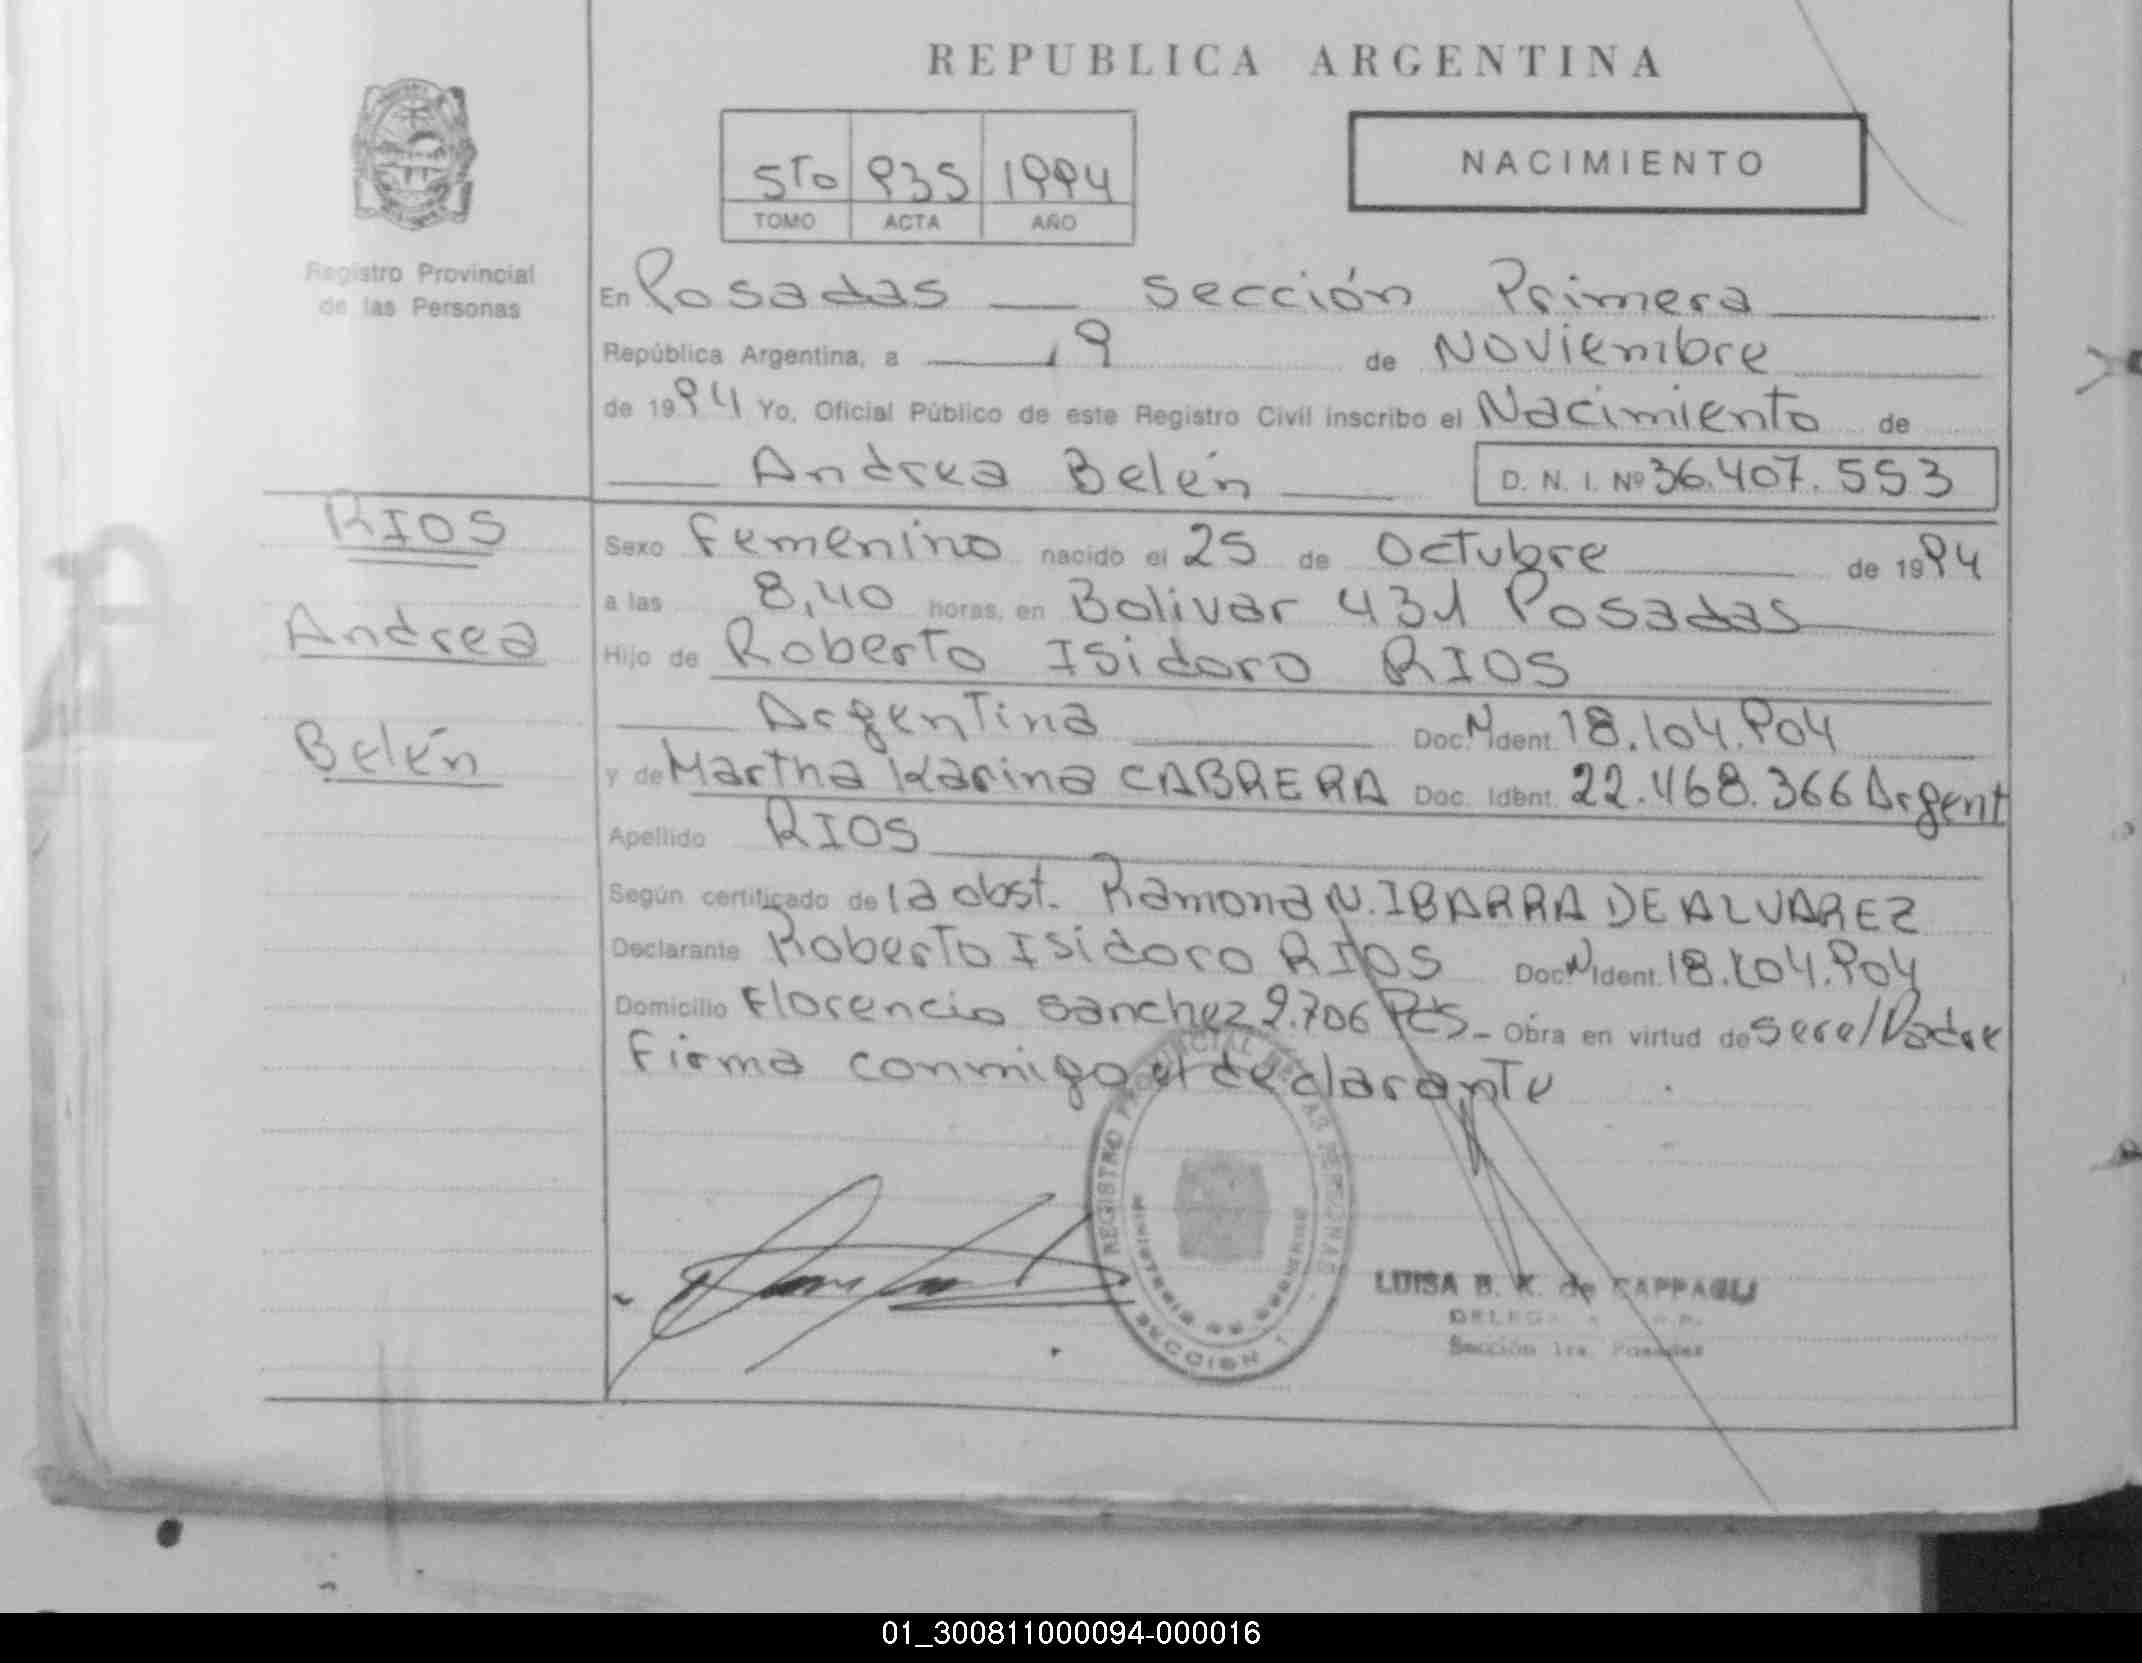 REPUBLICA ARGENTINA
5To 935 1994
TOMO ACTA AÑO
NACIMIENTO
Registro Provincial
de las Personas
En Posadas sección Primera
República Argentina, a 9 de Noviembre
de 1994 Yo, Oficial Público de este Registro Civil inscribo el Nacimiento de
Andrea Belén D. N. I. Nº 36.407.553
RIOS
Andrea
Belén
Sexo femenino nacido el 25 de Octubre de 1994
a las 8,40 horas, en Bolivar 431 Posadas
Hijo de Roberto Isidoro RIOS
Argentina Doc. N Ident. 18.104.904
y de Martha Karina CABRERA Doc. Ident. 22.468.366 Argent
Apellido RIOS
Según certificado de la obst. Ramona N. IBARRA DE ALVAREZ
Declarante Roberto Isidoro RIOS Doc. N Ident. 18.104.904
Domicilio Florencio Sanchez 2.706 Pds - Obra en virtud de ser el Padre
Firma conmigo el declarante
REGISTRO PROVINCIAL DE LAS PERSONAS
MINISTERIO DE GOBIERNO
SECCION 1
LUISA B. K. de CAPPAGLI
Sección 1ra. Posadas
01_300811000094-000016